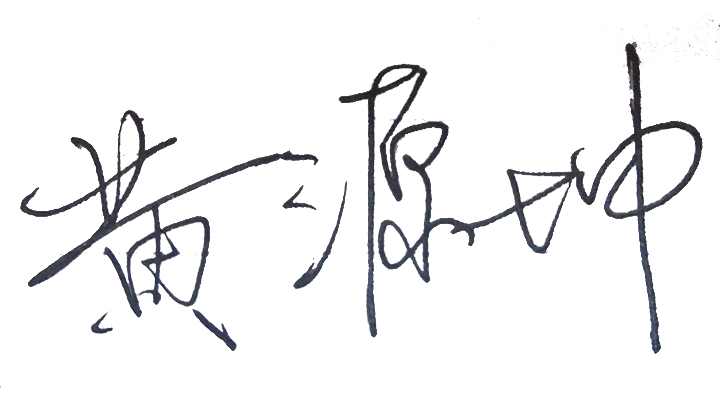 黄源坤